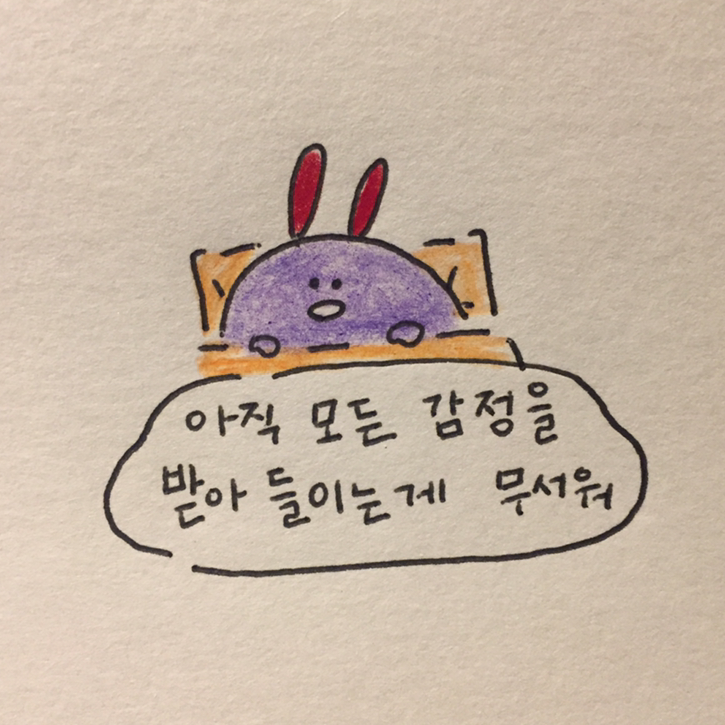 아직 모든 감정을
받아 들이는게 무서워